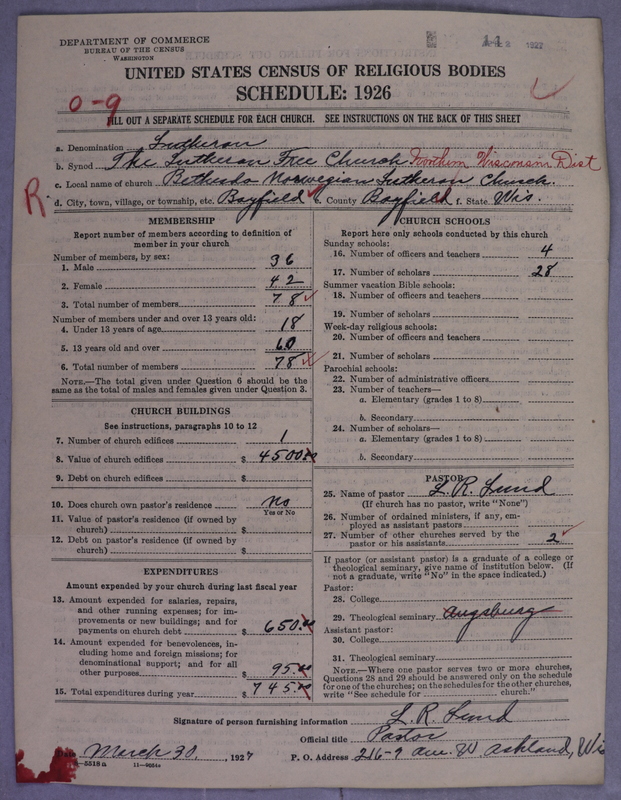 DEPARTMENT OF COMMERCE
BUREAU OF THE CENSUS
WASHINGTON
1927
UNITED STATES CENSUS OF RELIGIOUS BODIES
SCHEDULE: 1926
0-9
FILL OUT A SEPARATE SCHEDULE FOR EACH CHURCH. SEE INSTRUCTIONS ON THE BACK OF THIS SHEET
a. Denomination Lutheran
b. Synod The Lutheran Free Church Northern Wisconsin Dist
c. Local name of church Bethesda Norwegian Lutheran Church.
R.
d. City, town, village, or township, etc. Bayfield e. County Bayfield f. State Wis.
MEMBERSHIP
Report number of members according to definition of
member in your church
Number of members, by sex:
1. Male 36
2. Female 42
3. Total number of members 78
Number of members under and over 13 years old:
4. Under 13 years of age 18
5. 13 years old and over 60
6. Total number of members 78
NOTE.—The total given under Question 6 should be the
same as the total of males and females given under Question 3.
CHURCH BUILDINGS
See instructions, paragraphs 10 to 12
7. Number of church edifices 1
8. Value of church edifices $ 4500.00
9. Debt on church edifices $
10. Does church own pastor's residence No
Yes or No
11. Value of pastor's residence (if owned by
church) $
12. Debt on pastor's residence (if owned by
church) $
EXPENDITURES
Amount expended by your church during last fiscal year
13. Amount expended for salaries, repairs,
and other running expenses; for im-
provements or new buildings; and for
payments on church debt $ 650.00
14. Amount expended for benevolences, in-
cluding home and foreign missions; for
denominational support; and for all
other purposes $ 95.00
15. Total expenditures during year $ 745.00
CHURCH SCHOOLS
Report here only schools conducted by this church
Sunday schools:
16. Number of officers and teachers 4
17. Number of scholars 28
Summer vacation Bible schools:
18. Number of officers and teachers
19. Number of scholars
Week-day religious schools:
20. Number of officers and teachers
21. Number of scholars
Parochial schools:
22. Number of administrative officers
23. Number of teachers—
a. Elementary (grades 1 to 8)
b. Secondary
24. Number of scholars—
a. Elementary (grades 1 to 8)
b. Secondary
PASTOR
25. Name of pastor L. R. Lund
(If church has no pastor, write "None")
26. Number of ordained ministers, if any, em-
ployed as assistant pastors
27. Number of other churches served by the
pastor or his assistants 2
If pastor (or assistant pastor) is a graduate of a college or
theological seminary, give name of institution below. (If
not a graduate, write "No" in the space indicated.)
Pastor:
28. College
29. Theological seminary Augsburg
Assistant pastor:
30. College
31. Theological seminary
NOTE.—Where one pastor serves two or more churches,
Questions 28 and 29 should be answered only on the schedule
for one of the churches; on the schedules for the other churches,
write "See schedule for church."
Signature of person furnishing information L. R. Lund
Official title Pastor
Date March 30, 1927 P. O. Address 216-9 Ave. W Ashland, Wis
8-5518a 11-9084